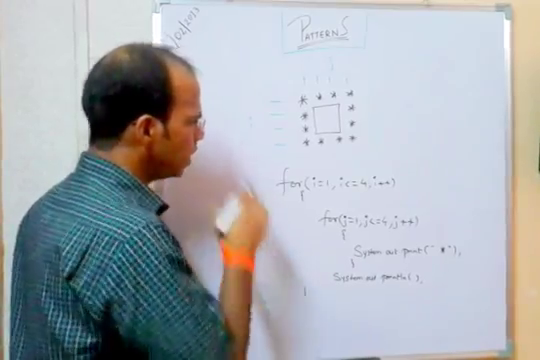 /02/2023
PATTERNS
* * * *
* *
* *
* * * *
for(i=1, i<=4, i++)
{
for(j=1, j<=4, j++)
{
System out print(" *"),
}
System out println( ),
}